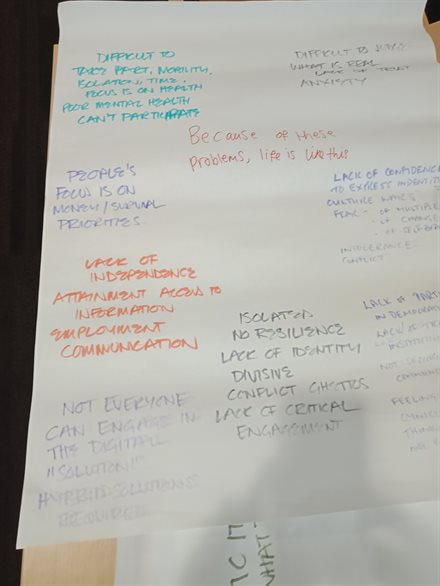 DIFFICULT TO
TAKE PART, MOBILITY,
ISOLATION, TIME.
FOCUS IS ON HEALTH
POOR MENTAL HEALTH
CAN'T PARTICIPATE
DIFFICULT TO JUDGE
WHAT IS REAL
LACK OF TRUST
ANXIETY
Because of these
problems, life is like this
PEOPLE'S
FOCUS IS ON
MONEY/SURVIVAL
PRIORITIES.
LACK OF CONFIDENCE
TO EXPRESS INDENTITY
CULTURE WARS
FEAR - OF MULTIPLE
- OF CHANGE
- OF
INTOLERANCE
CONFLICT
LACK OF
INDEPENDENCE
ATTAINMENT ACCESS TO
INFORMATION
EMPLOYMENT
COMMUNICATION
ISOLATED
NO RESILIENCE
LACK OF IDENTITY
DIVISIVE
CONFLICT GHETTOS
LACK OF CRITICAL
ENGAGEMENT
LACK OF
IN
LACK OF
NOT
FEELING
NOT EVERYONE
CAN ENGAGE IN
THE DIGITAL
"SOLUTION!"
HYBRID SOLUTIONS
REQUIRED
WHAT